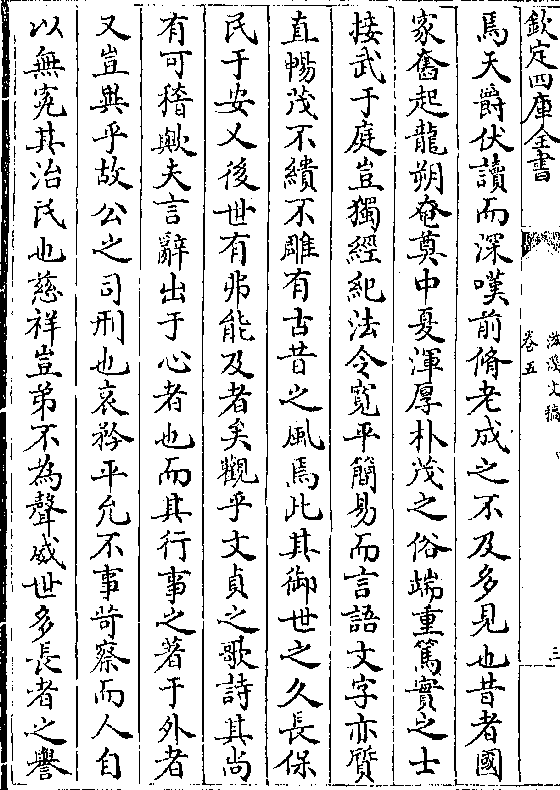 欽定四庫全書
滋溪文稿
卷五
三
焉天爵伏讀而深嘆前脩老成之不及多見也昔者國
家奮起龍朔奄奠中夏渾厚朴茂之俗端重篤實之士
接武于庭豈獨經紀法令寛平簡易而言語文字亦質
直暢茂不繢不雕有古昔之風焉此其御世之久長保
民于安乂後世有弗能及者矣觀乎文貞之歌詩其尚
有可稽歟夫言辭出于心者也而其行事之著于外者
又豈異乎故公之司刑也哀矜平允不事苛察而人自
以無寃其治民也慈祥豈弟不為聲威世多長者之譽